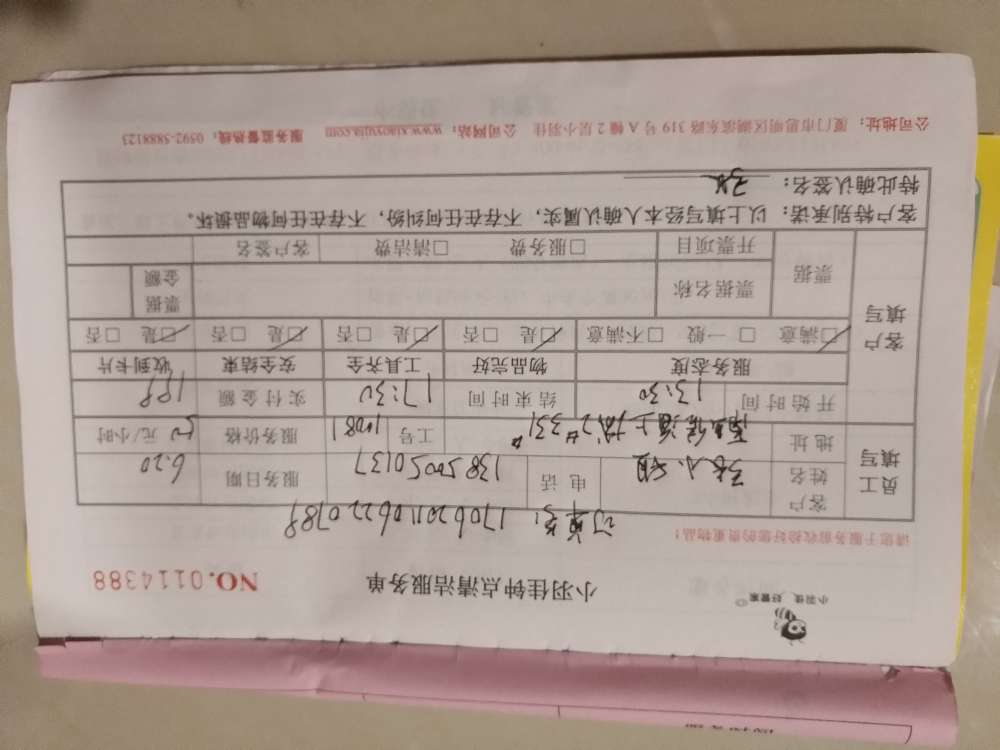 小羽佳 好管家
小羽佳钟点清洁服务单 NO.0114388
请您于服务前收拾您的贵重物品!
订单号: 170620110622078
员工填写 客户姓名 张小姐 电话 13850050137 服务日期 6.20
地址 海上城 2# 331# 工号 10081 服务价格 50 元/小时
开始时间 13:30 结束时间 17:30 实付金额
客户填写 服务态度 物品完好 工具齐全 安全结束 收到卡片
☑满意 □一般 □不满意 ☑是 □否 ☑是 □否 ☑是 □否 ☑是 □否
票据 票据名称 票据金额
开票项目 □服务费 □清洁费 客户签名
客户特别承诺: 以上填写经本人确认属实,不存在任何纠纷,不存在任何物品损坏。
特此确认签名:
公司地址: 厦门市思明区湖滨东路 319 号 A 幢 2 层小羽佳 公司网站: www.xiaoyujia.com 服务监督热线: 0592-5888123